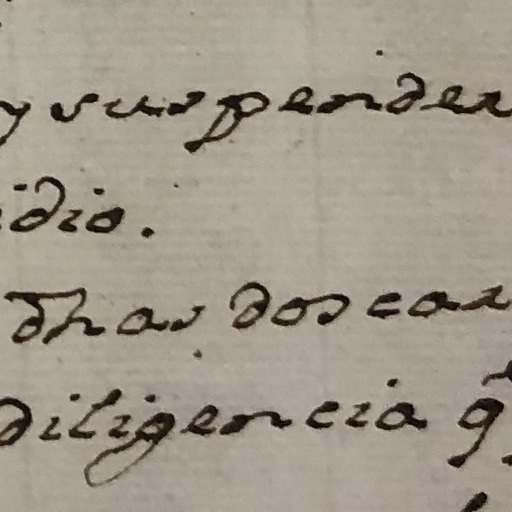 y suspender
idio.
dhas dos car
diligencia q̃